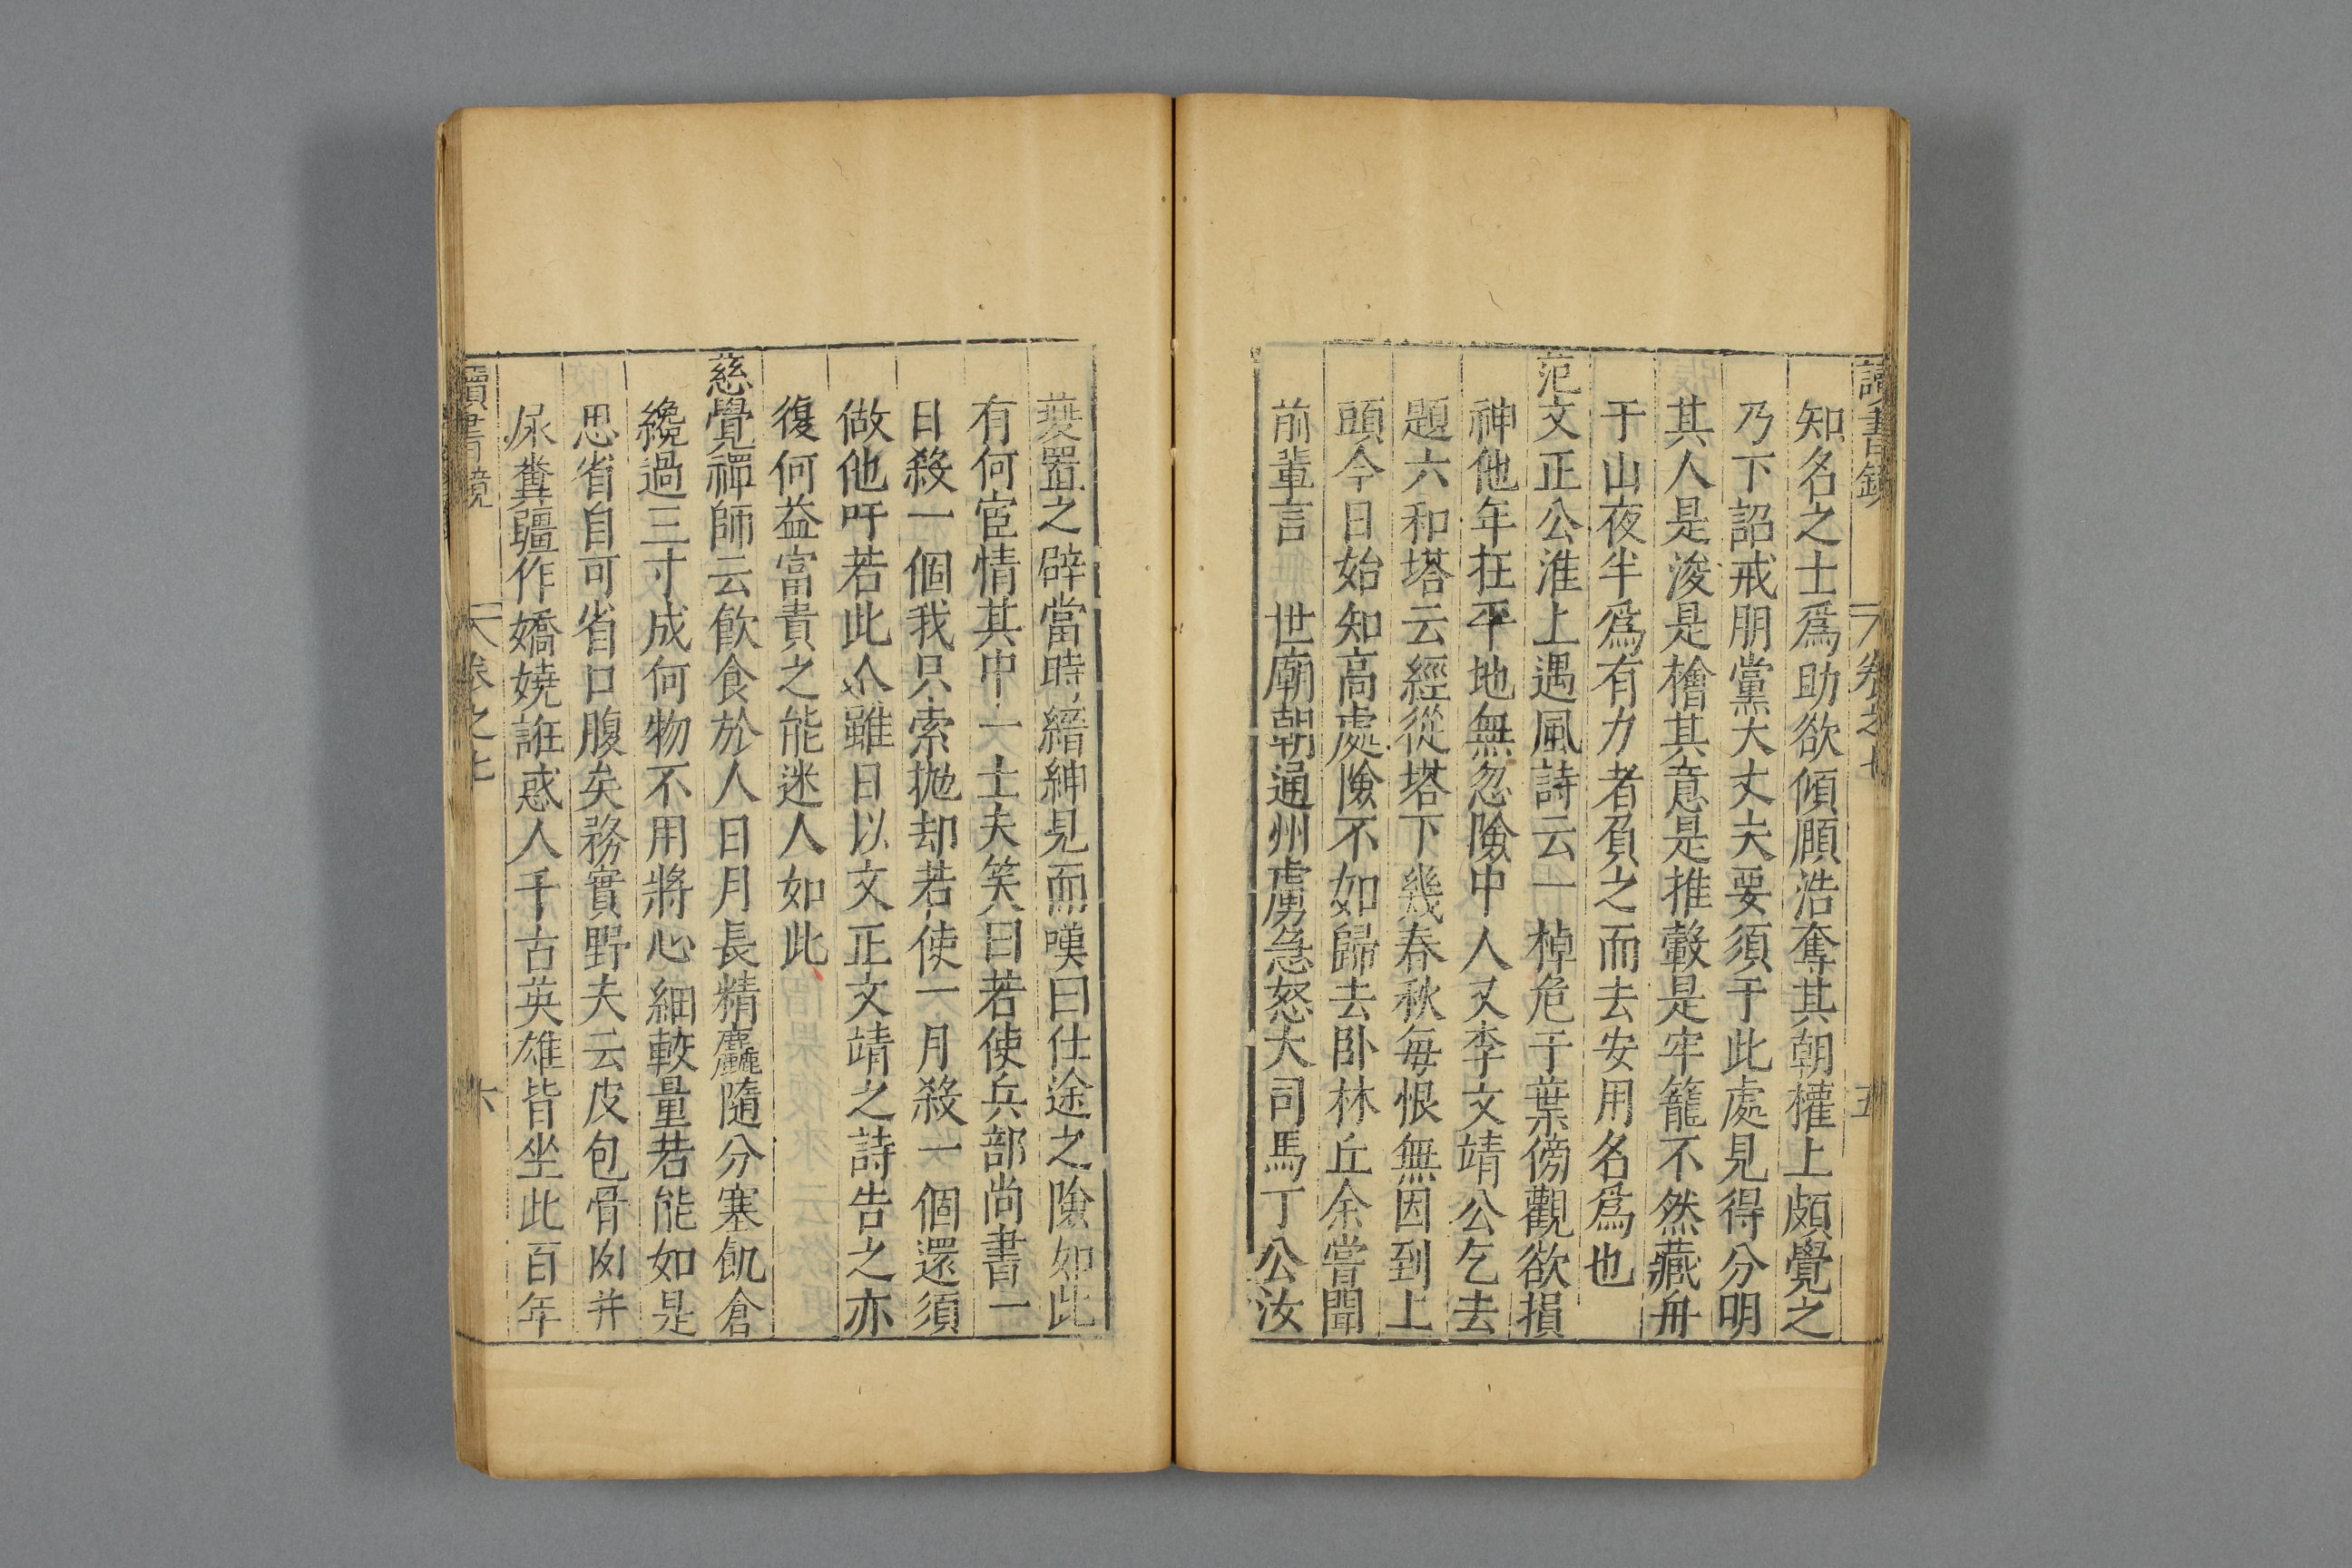 讀書鏡 卷之七 五
知名之士爲助欲傾頤浩奪其朝權上頗覺之
乃下詔戒朋黨大丈夫要須于此處見得分明
其人是浚是檜其意是推轂是牢籠不然藏舟
于山夜半爲有力者負之而去安用名爲也
范文正公淮上遇風詩云一棹危于葉傍觀欲損
神他年在平地無忽險中人又李文靖公乞去
題六和塔云經從塔下幾春秋每恨無因到上
頭今日始知高處險不如歸去卧林丘余嘗聞
前輩言 世廟朝通州虜急怒大司馬丁公汝
夔置之辟當時縉紳見而嘆曰仕途之險如此
有何宦情其中一士夫笑曰若使兵部尚書一
日殺一個我只索抛却若使一月殺一個還須
做他吁若此人雖日以文正文靖之詩告之亦
復何益富貴之能迷人如此
慈覺禪師云飲食於人日月長精麤隨分塞飢倉
纔過三寸成何物不用將心細較量若能如是
思省自可省口腹矣務實野夫云皮包骨肉并
尿糞疆作嬌嬈誑惑人千古英雄皆坐此百年
讀書鏡 卷之七 六